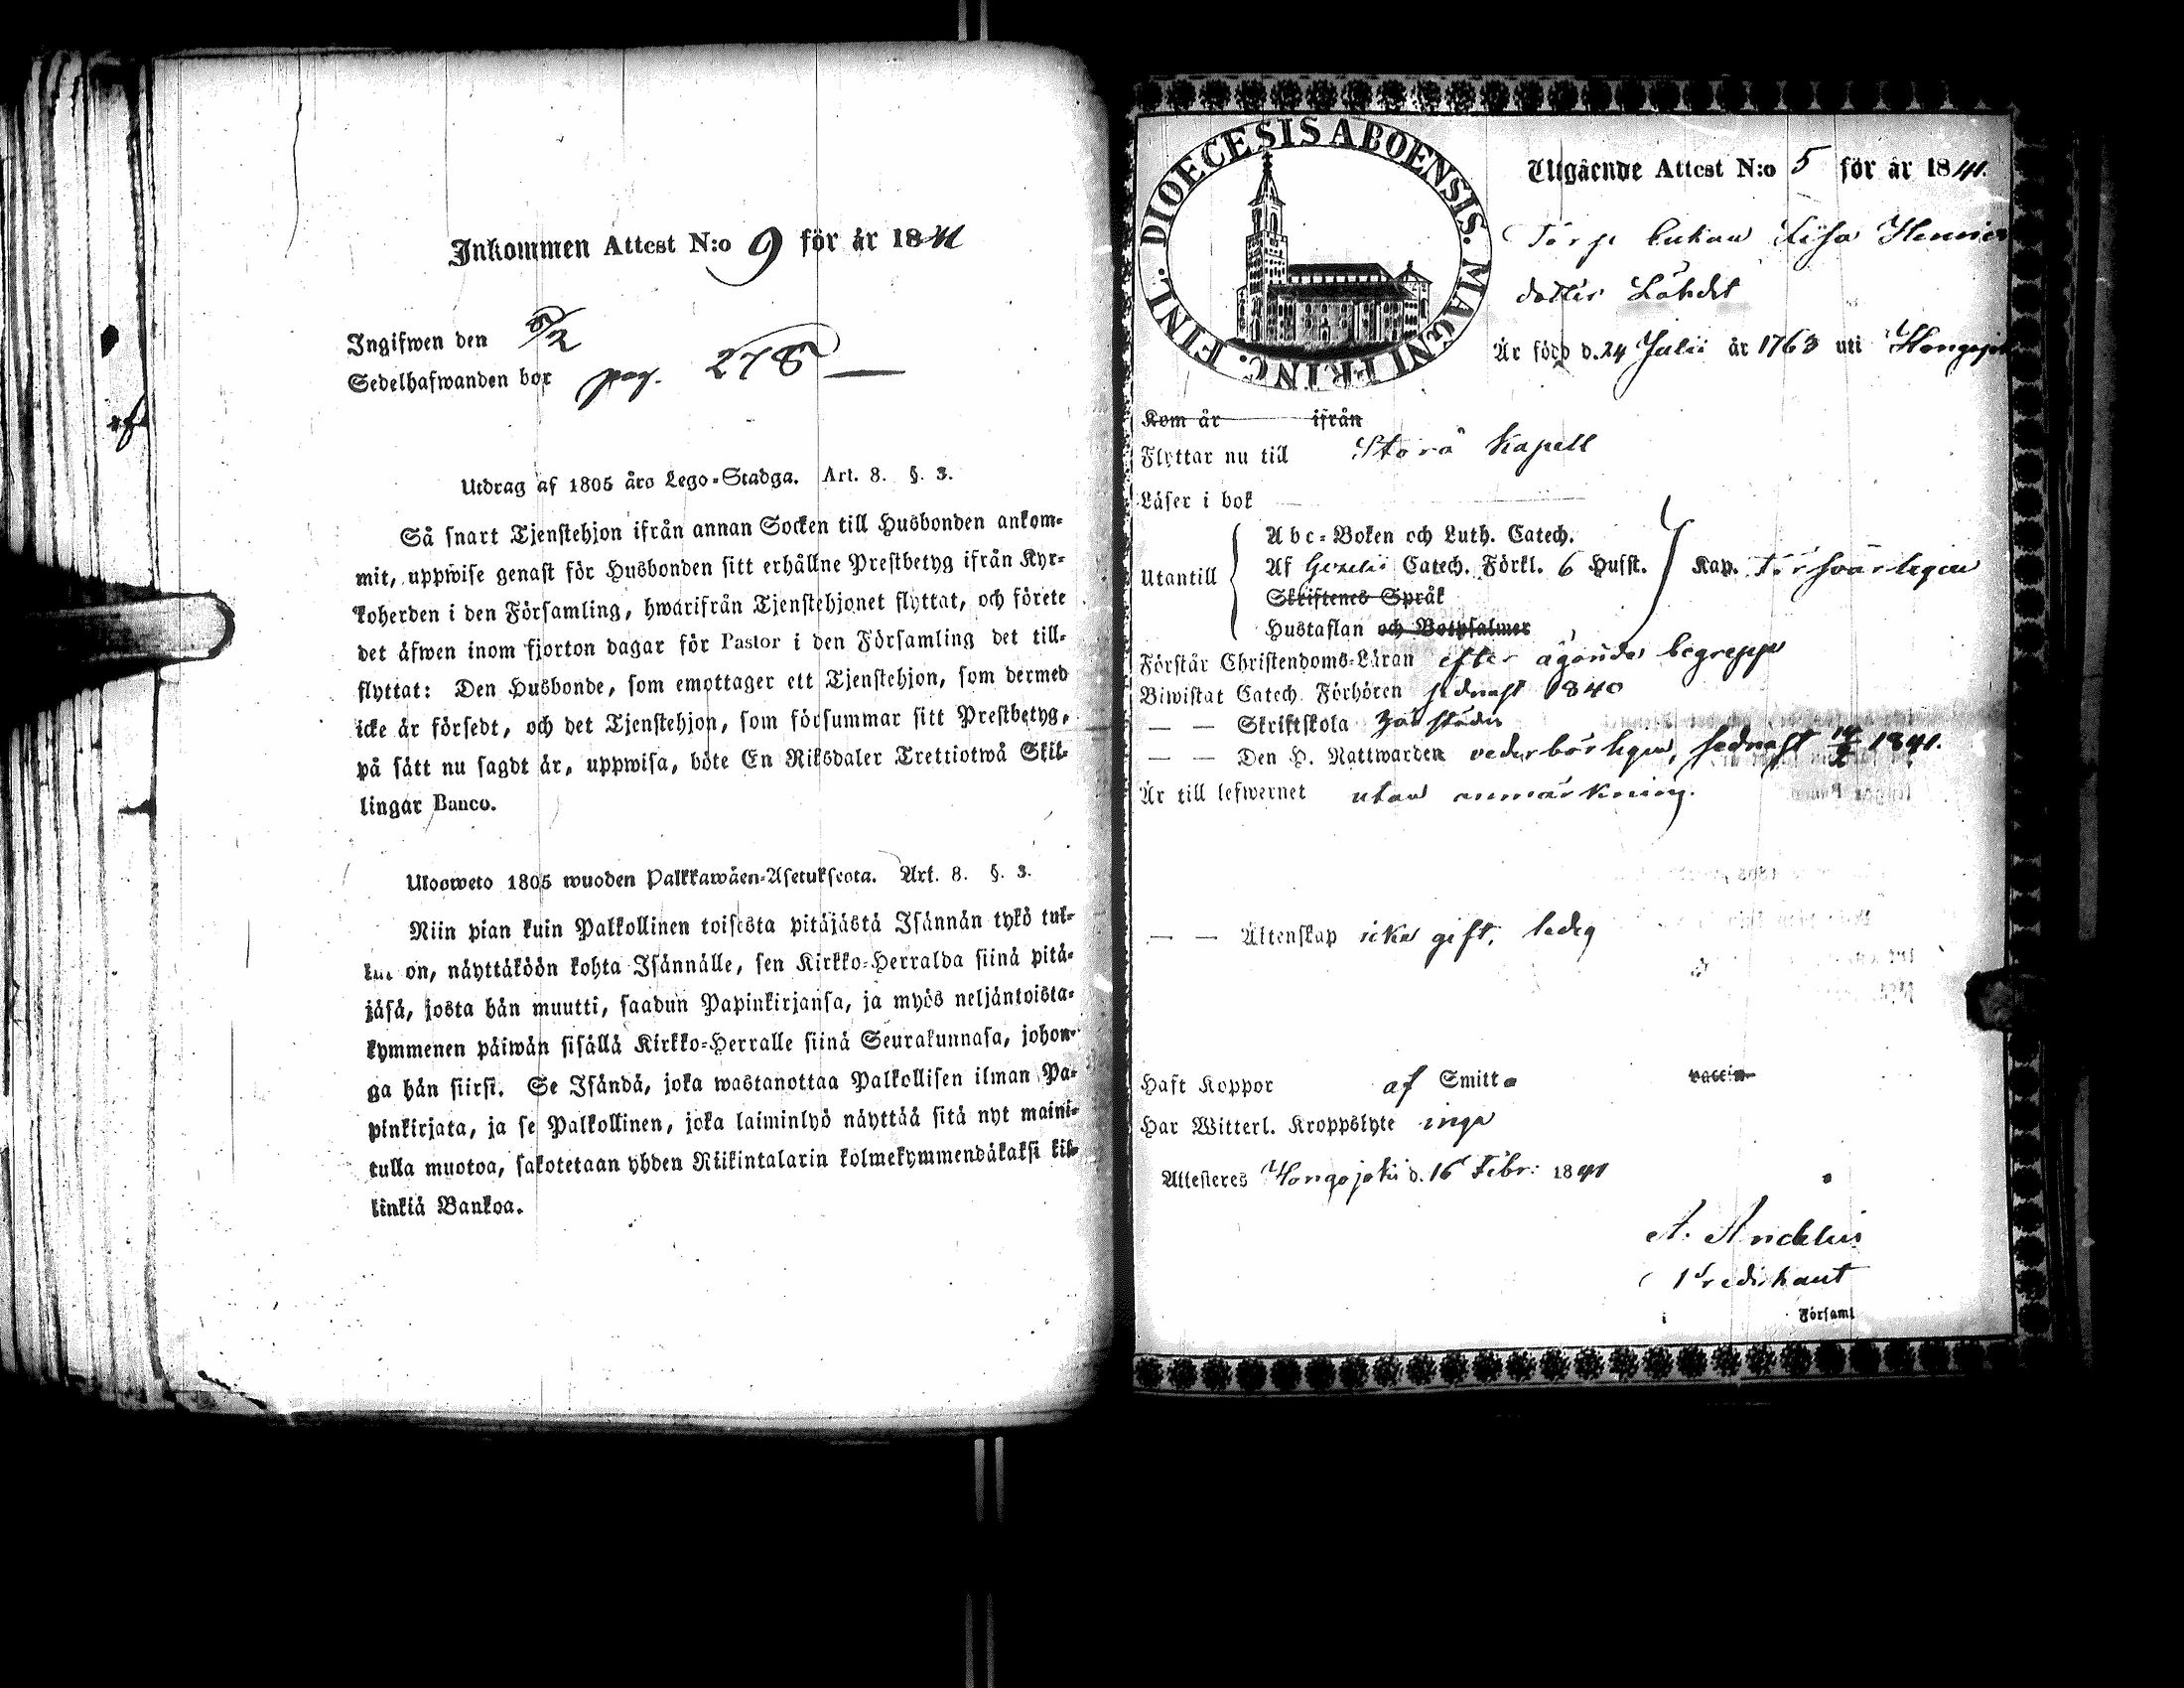 Inkommen Attest N:o 9 för år 1841
Ingifwen den
Sedelhafwanden bor pag. 278
Utdrag af 1805 års Lego-Stadga. Art. 8. §. 3.
Så snart Tjenstehjon ifrån annan Socken till Husbonden ankom-
mit, uppwise genast för Husbonden sitt erhållne Prestbetyg ifrån Kyr-
koherden i den Församling, hwarifrån Tjenstehjonet flyttat, och förete
det äfwen inom fjorton dagar för Pastor i den Församling det till-
flyttat: Den Husbonde, som emottager ett Tjenstehjon, som dermed
icke är försedt, och det Tjenstehjon, som försummar sitt Prestbetyg,
på sätt nu sagdt är, uppwisa, böte En Riksdaler Trettiotwå Skil-
lingar Banco.
Ulosweto 1805 wuoden Palkkawäen-Asetuksesta. Art. 8. §. 3.
Niin pian kuin Palkollinen toisesta pitäjästä Isännän tykö tul-
kut on, näyttäköön kohta Isännälle, sen Kirkko-Herralda siinä pitä-
jäsä, josta hän muutti, saadun Papinkirjansa, ja myös neljäntoista-
kymmenen päiwän sisällä Kirkko-Herralle siinä Seurakunnasa, johon-
ga hän siirsi. Se Isändä, joka wastanottaa Palkollisen ilman Pa-
pinkirjata, ja se Palkollinen, joka laiminlyö näyttää sitä nyt maini-
tulla muotoa, sakotetaan yhden Riikintalarin kolmekymmendäkaksi kil-
linkiä Bankoa.
DIOECESIS ABOENSIS. MAGNI PRINC. FINL.
Utgående Attest N:o 5 för år 1841.
Torp Enkan Lisa Henrics
dotter Lähdet
Är född d. 24 Julii år 1763 uti Hongojoki
Kom år ifrån
Flyttar nu till Storå Kapell
Läser i bok
Utantill
Abc-Boken och Luth. Catech.
Af Gezelii Catech. Förkl. 6 Husst. Kap. försvarligen
Skriftenes Språk
Hustaflan och Botpsalmer
Förstår Christendoms-Läran efter ägande begrepp
Biwistat Catech. Förhören sednast 1840
— — Skriftskola
— — Den H. Nattwarden vederbörligen, sednast 1841.
Är till lefwernet utan anmärkning.
— — Äktenskap icke gift, ledig
Haft Koppor af Smitta vaccin
Har Witterl. Kroppslyte inga
Attesteras Hongojoki d. 16 Febr: 1841
A. Arcklius
Predikant
i Församl